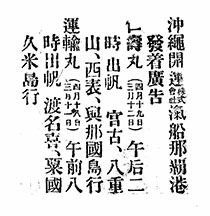 沖繩開運株式會社汽船那覇港
發着廣告
仁壽丸(四月十九日 三月十二日)午后二
時出帆 宮古、八重
山、西表、與那國島行
運輸丸(四月十八日 三月十一日)午前八
時出帆 渡名喜、粟國
久米島行